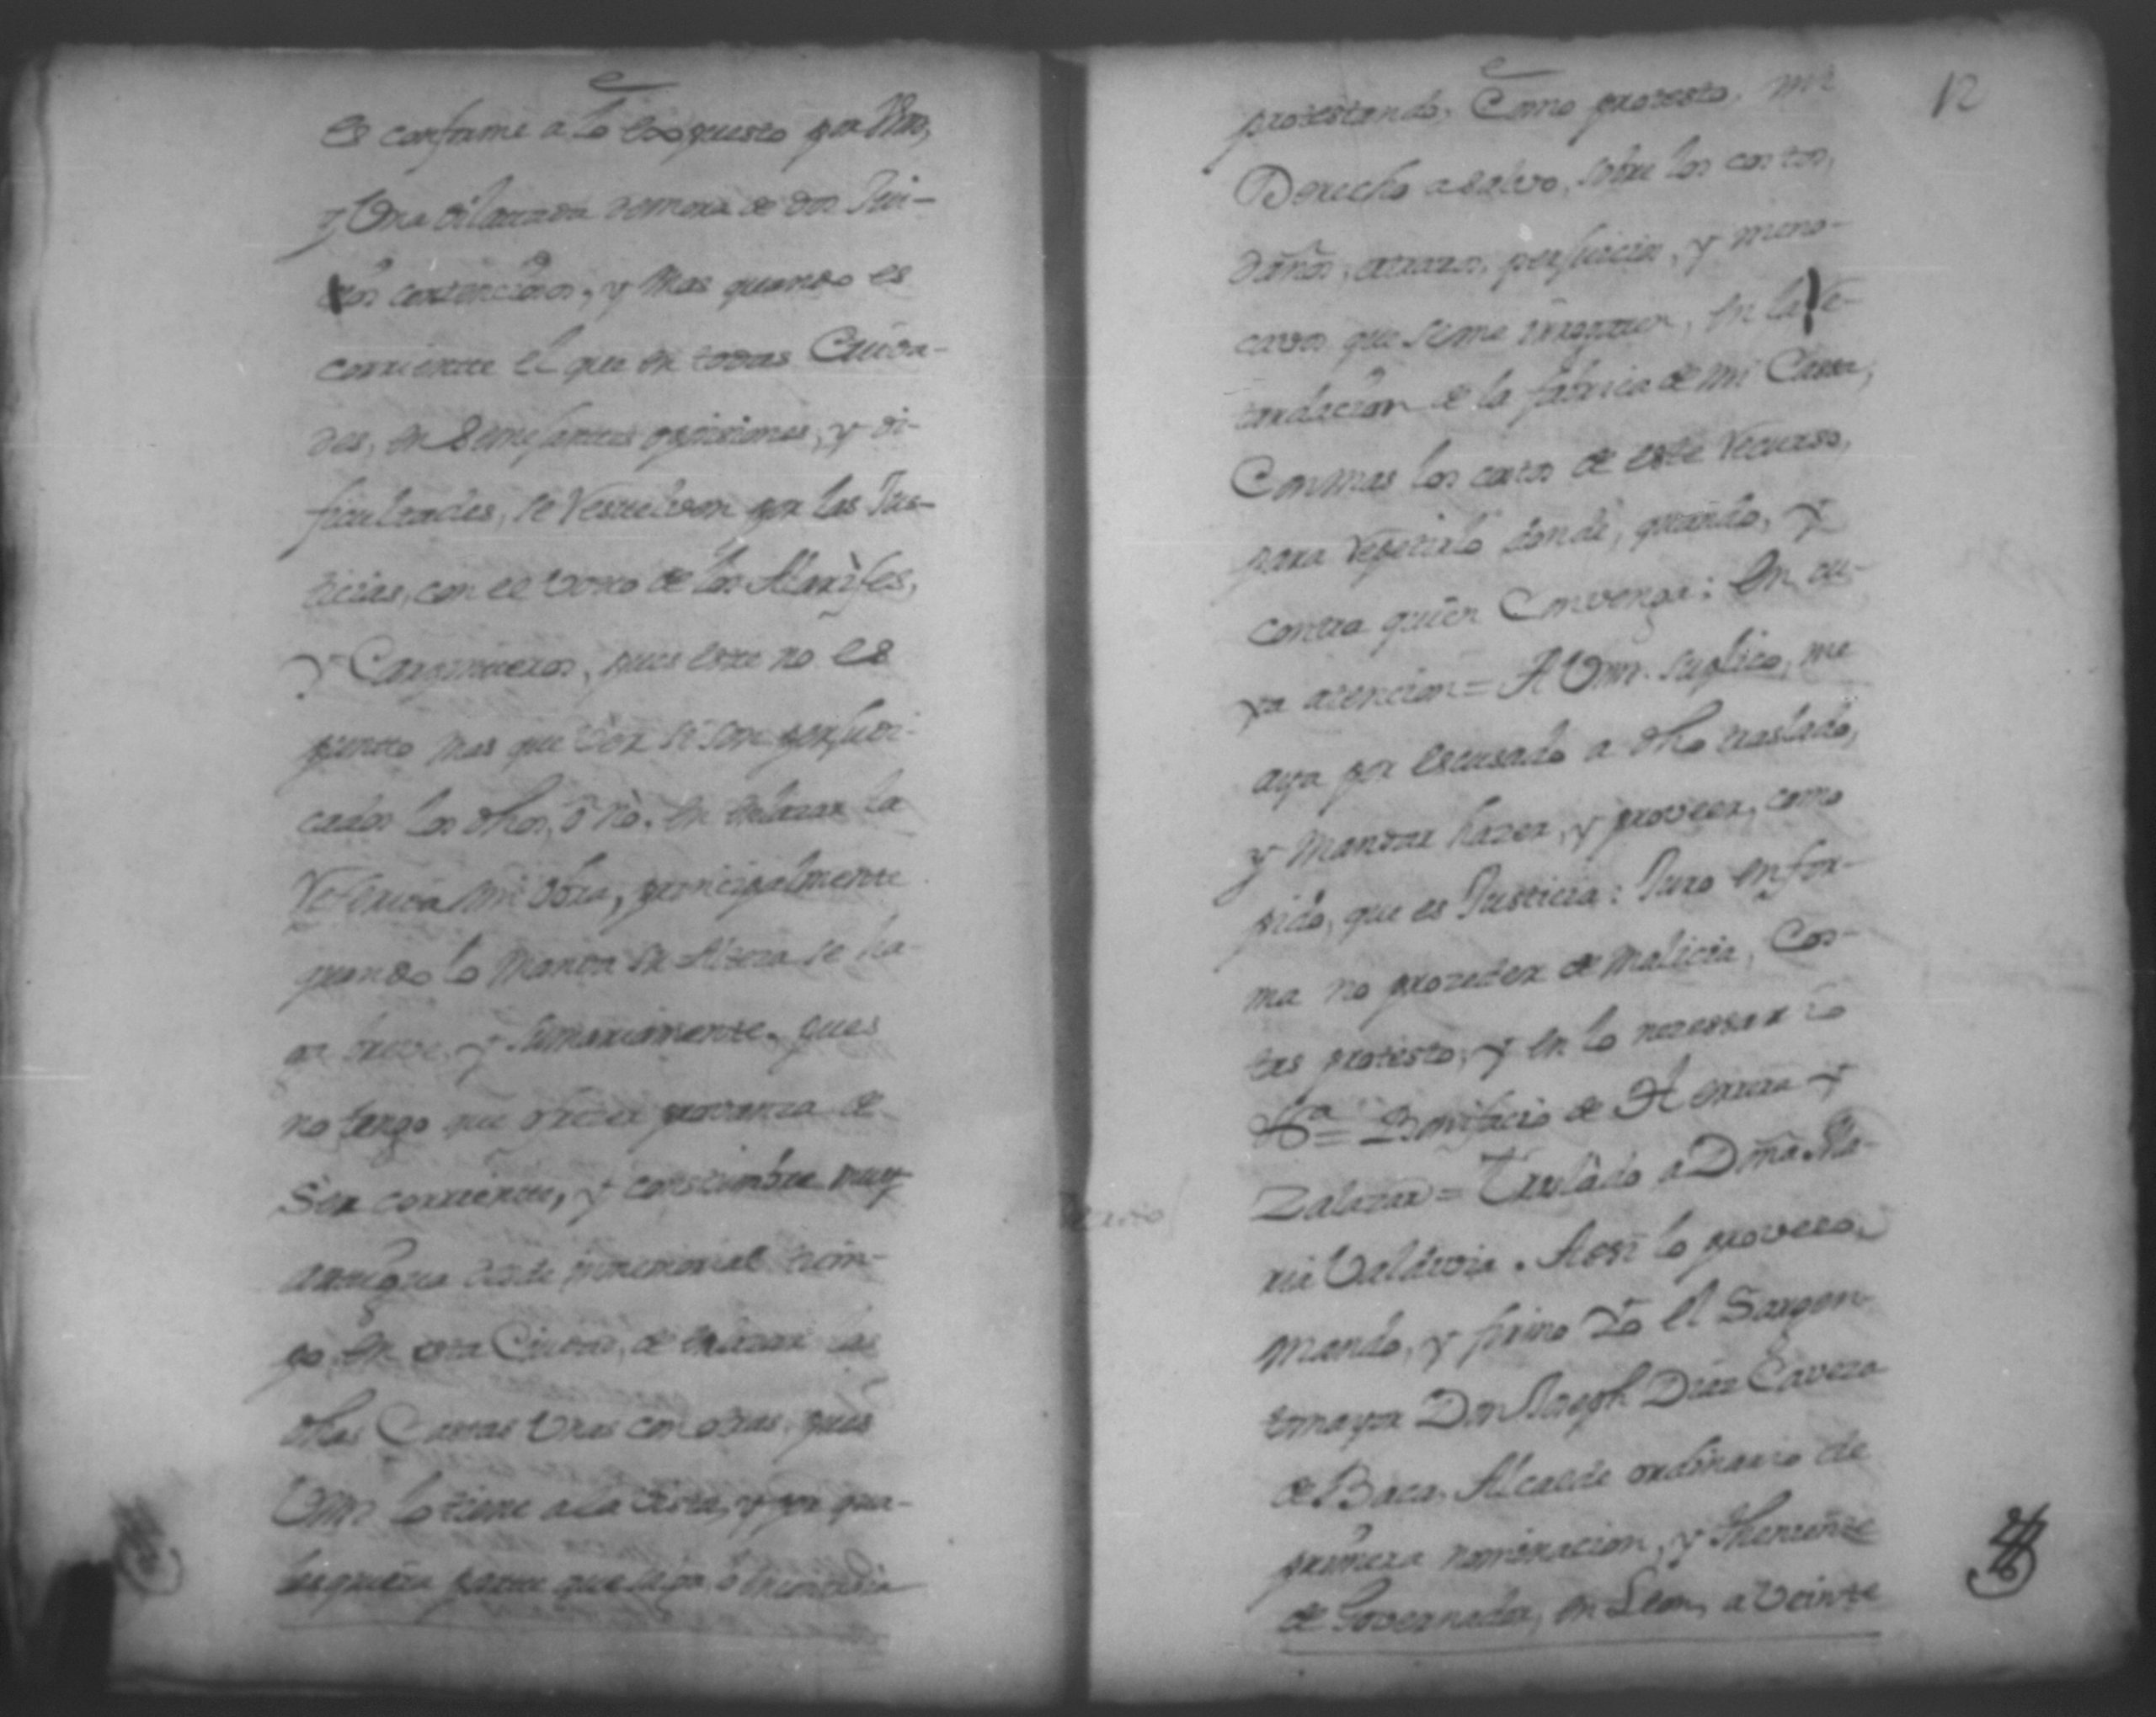 es conforme a lo expuesto por Vm,
y Una dilatada demora de dos Jui-
cios contenciosos, y mas quando es
corriente el que en todas Ciuda-
des, en Semejantes opiniones, y di-
ficultades, se resuelven por las Jus-
ticias, con el voto de los Alarifes,
y Carpinteros, pues este no es
punto mas que ver si son perjudi-
cados los dhos, ô nò, en enlazar la
referida mi obra, principalmente
quando lo manda su Alteza se ha-
ga breve y sumariamente, pues
no tengo que ofrecer provanza de
Ser corriente, y constumbre muy
antigua desde inmemorial tiem-
po, en esta Ciudad, de enlazar las
dhas Cassas Unas con otras, pues
Vm lo tiene a la vista, y por qua-
lesquiera parte que siga
12
protestando, Como protesto, mi
Derecho a salvo, sobre los costos,
daños, atrazos, perjuicios, y meno-
cavos que se me irroguen, en la re-
tardacion de la fabrica de mi Cassa,
Con mas los costos de este recurso,
para repetirlo donde, quando, y
contra quien Convenga: En cu-
ya atencion = A Vm. suplico, me
aya por escusado a dho traslado,
y mandar hazer, y proveer, como
pido, que es Justicia: Juro en for-
ma no proceder de malicia, Cos-
tas protesto, y en lo nezessario
&a = Bonifacio de Herrera y
Zalazar = Traslado a Dña Ma-
ria Valdivia. Assi lo proveeo,
mando, y firmo Yo el Sargen-
to mayor Don Joseph Diaz Caveza
de Baca, Alcalde ordinario de
primera nominacion, y Theniente
de Governador, en Leon, a Veinte